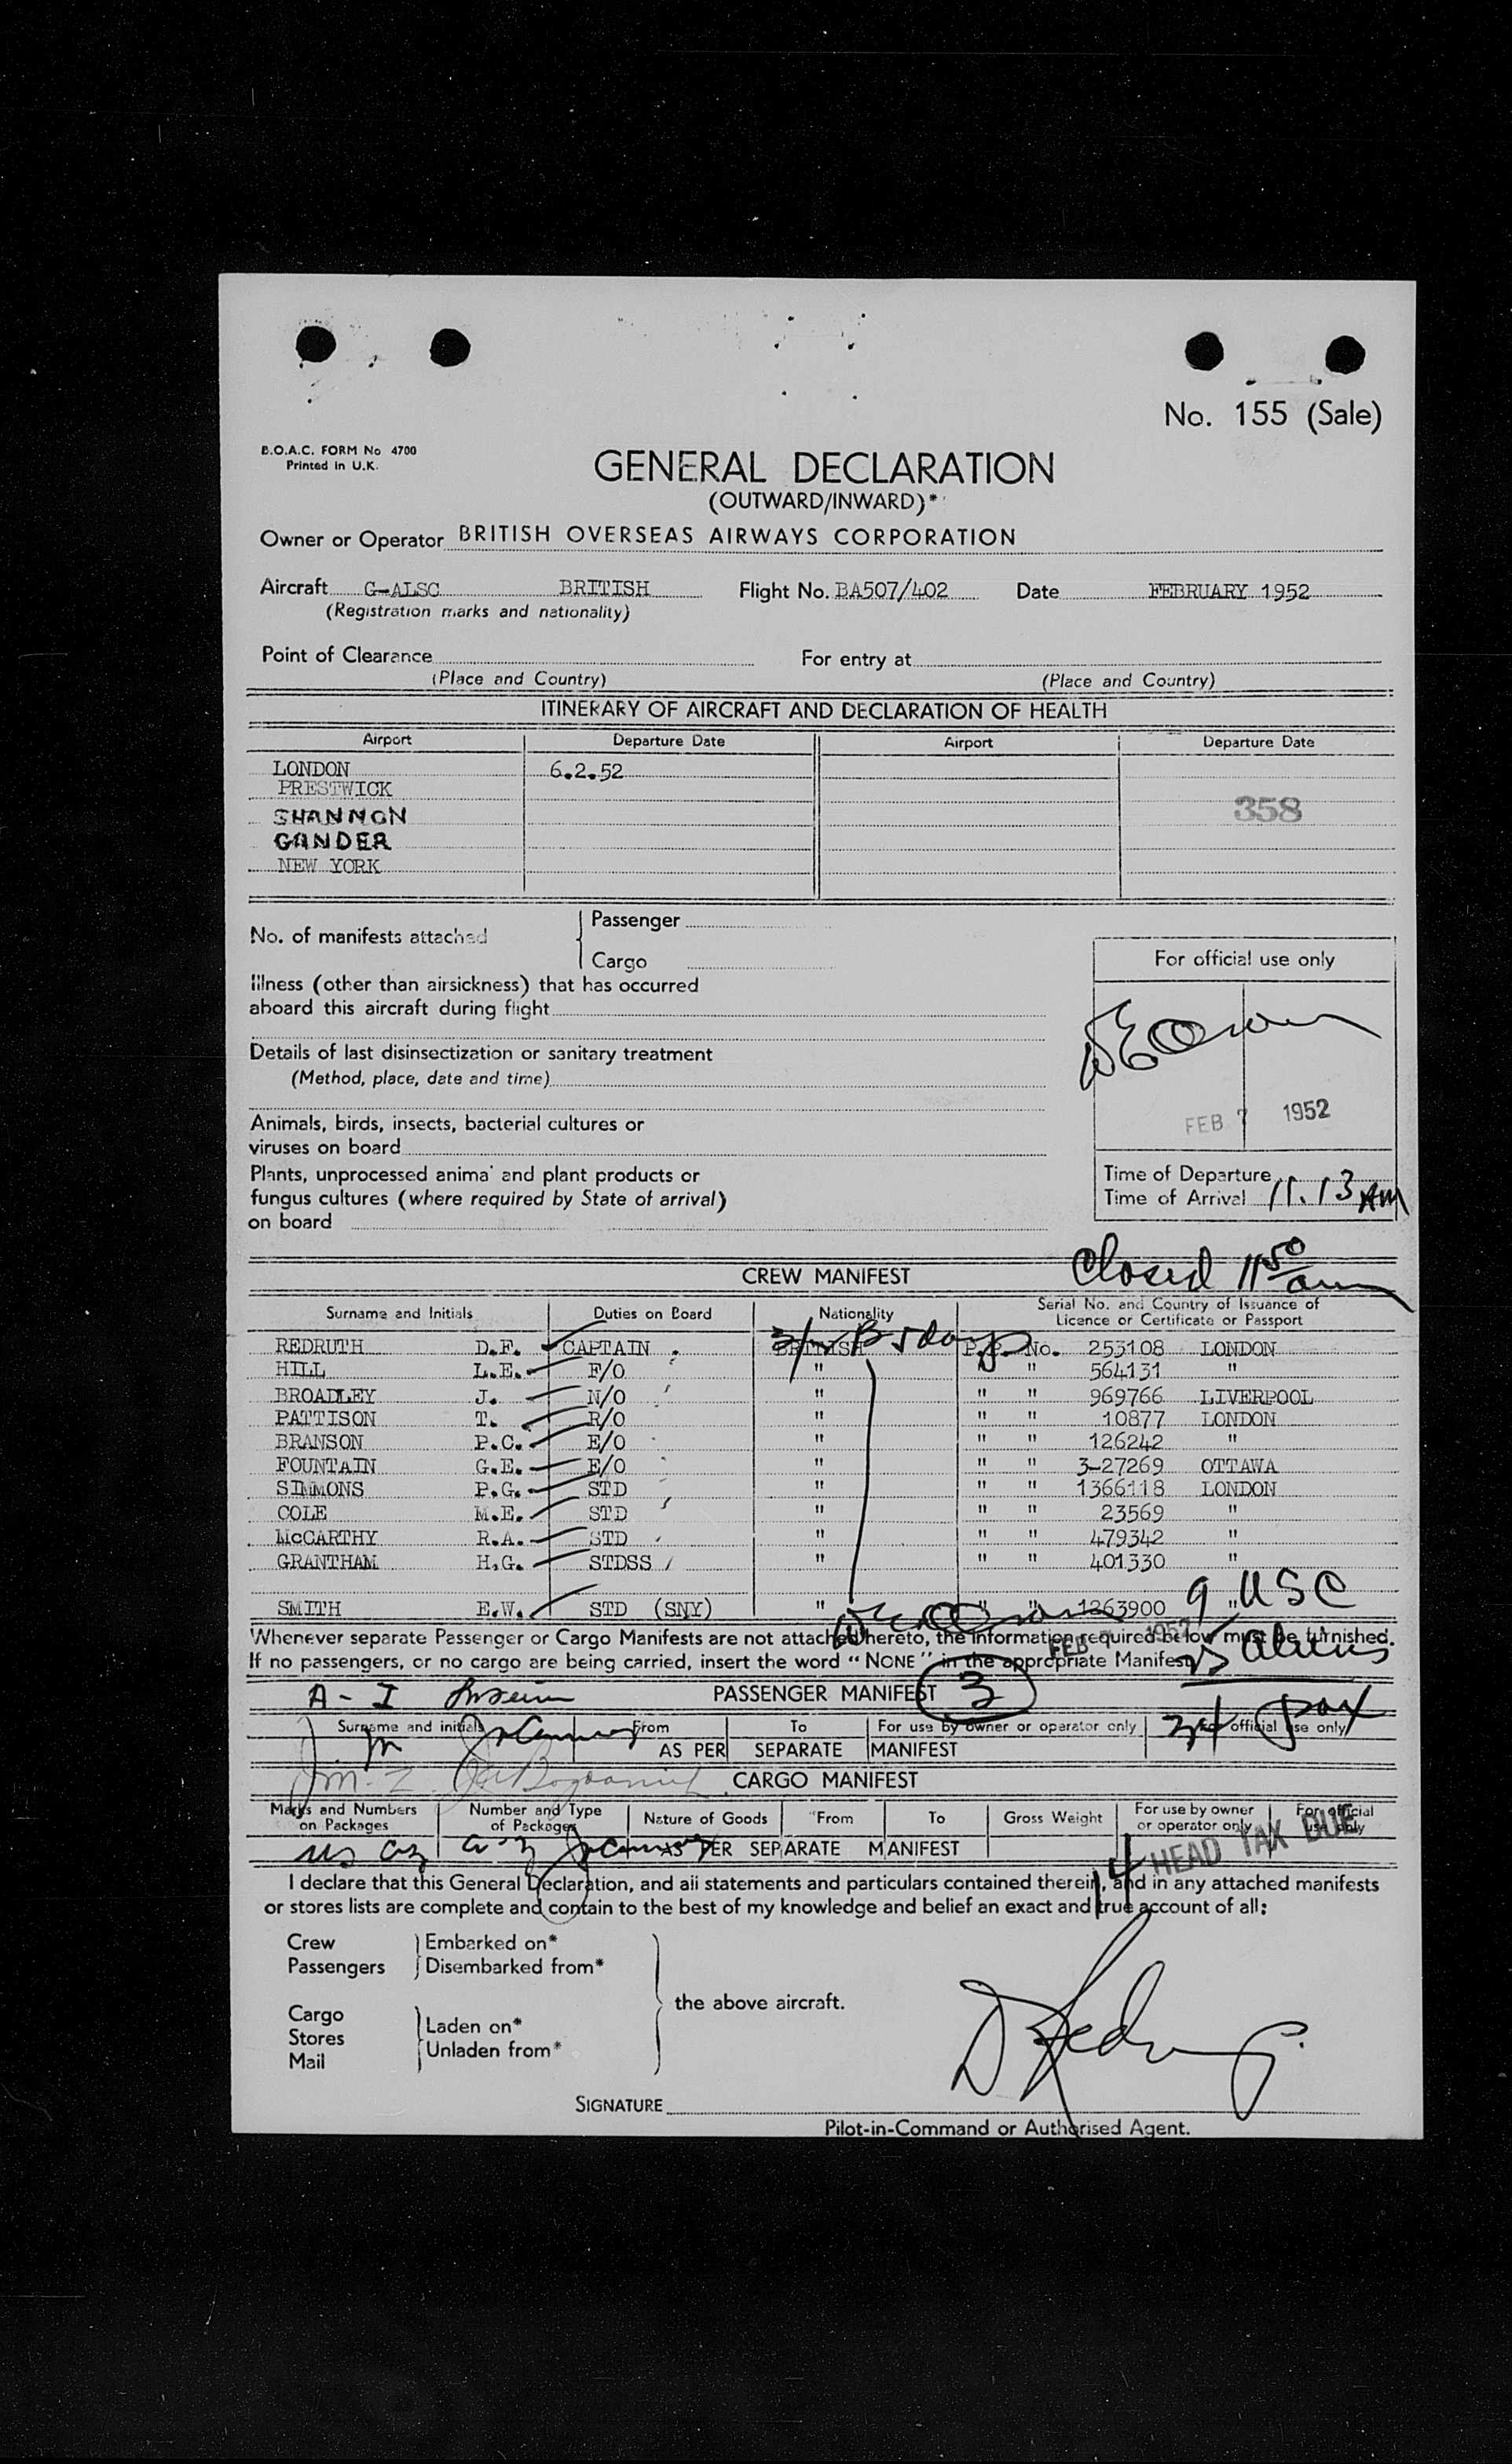 No. 155 (Sale)
B.O.A.C. FORM No 4700
Printed in U.K.
GENERAL DECLARATION
(OUTWARD/INWARD)*
Owner or Operator BRITISH OVERSEAS AIRWAYS CORPORATION
Aircraft G-ALSC BRITISH Flight No. BA507/402 Date FEBRUARY 1952
(Registration marks and nationality)
Point of Clearance For entry at
(Place and Country) (Place and Country)
ITINERARY OF AIRCRAFT AND DECLARATION OF HEALTH
Airport Departure Date Airport Departure Date
LONDON 6.2.52
PRESTWICK
SHANNON 358
GANDER
NEW YORK
No. of manifests attached Passenger
Cargo
For official use only
Illness (other than airsickness) that has occurred
aboard this aircraft during flight
Details of last disinsectization or sanitary treatment
(Method, place, date and time)
FEB 7 1952
Animals, birds, insects, bacterial cultures or
viruses on board
Plants, unprocessed animal and plant products or
fungus cultures (where required by State of arrival)
on board
Time of Departure
Time of Arrival 11.13 AM
Closed 11 50 am
CREW MANIFEST
Surname and Initials Duties on Board Nationality Serial No. and Country of Issuance of
Licence or Certificate or Passport
REDRUTH D.F. CAPTAIN BRITISH P.P. No. 253108 LONDON
HILL L.E. F/O " 564131 "
BROADLEY J. N/O " " " 969766 LIVERPOOL
PATTISON T. R/O " " " 10877 LONDON
BRANSON P.C. E/O " " " 126242 "
FOUNTAIN G.E. E/O " " " 3-27269 OTTAWA
SIMMONS P.G. STD " " " 1366118 LONDON
COLE M.E. STD " " " 23569 "
McCARTHY R.A. STD " " " 479342 "
GRANTHAM H.G. STDSS " " " 401330 "
9 USC
SMITH E.W. STD (SNY) " " " 1263900 "
FEB 7 1952
Whenever separate Passenger or Cargo Manifests are not attached hereto, the information required below must be furnished.
If no passengers, or no cargo are being carried, insert the word "NONE" in the appropriate Manifest.
aliens
A - I PASSENGER MANIFEST 3
34 pax
Surname and initials From To For use by owner or operator only For official use only
AS PER SEPARATE MANIFEST
CARGO MANIFEST
Marks and Numbers on Packages Number and Type of Packages Nature of Goods From To Gross Weight For use by owner or operator only For official use only
AS PER SEPARATE MANIFEST
14 HEAD TAX DUE
I declare that this General Declaration, and all statements and particulars contained therein, and in any attached manifests
or stores lists are complete and contain to the best of my knowledge and belief an exact and true account of all:
Crew Embarked on*
Passengers Disembarked from*
the above aircraft.
Cargo
Stores Laden on*
Mail Unladen from*
SIGNATURE
Pilot-in-Command or Authorised Agent.